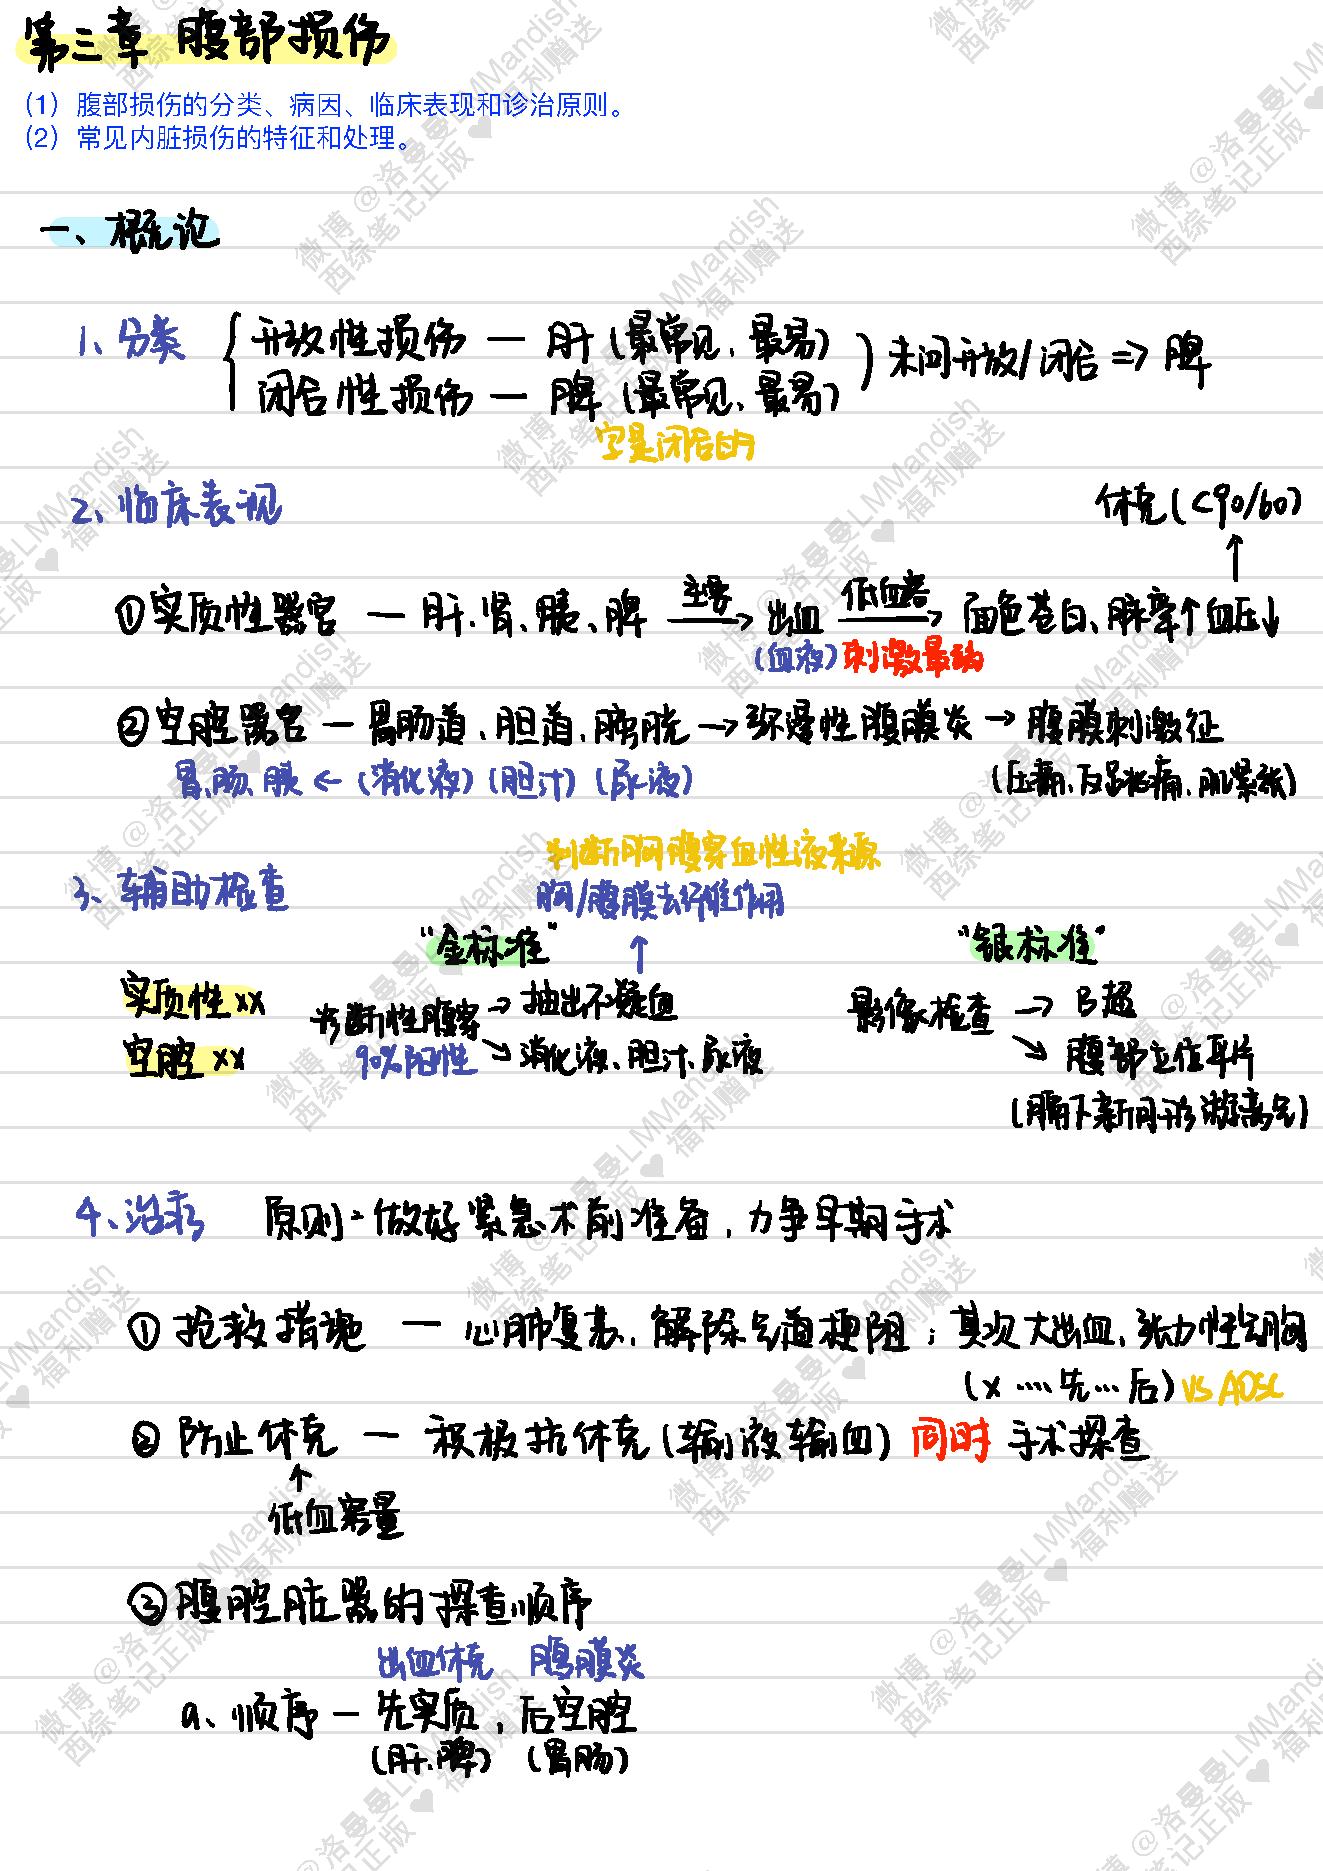 第三章 腹部损伤
（1）腹部损伤的分类、病因、临床表现和诊治原则。
（2）常见内脏损伤的特征和处理。
一、概论
1、分类 { 开放性损伤 — 肝（最常见、最易） ) 未问开放/闭合 => 脾
闭合性损伤 — 脾（最常见、最易）
定是闭合的
2、临床表现
休克(<90/60)
↑
①实质性器官 — 肝、肾、胰、脾 主要→ 出血 低血容→ 面色苍白、脉率↑血压↓
(血液) 刺激最弱
②空腔器官 — 胃肠道、胆道、膀胱 → 弥漫性腹膜炎 → 腹膜刺激征
胃、肠、胰 ← (消化液) (胆汁) (尿液) (压痛、反跳痛、肌紧张)
判断胸腹穿血性液来源
3、辅助检查 胸/腹膜去纤维作用
"金标准" ↑ "银标准"
实质性xx 诊断性腹穿 → 抽出不凝血 影像检查 → B超
空腔xx 90%阳性 ↘ 消化液、胆汁、尿液 ↘ 腹部立位平片
(膈下新月形游离气)
4、治疗 原则：做好紧急术前准备，力争早期手术
① 抢救措施 — 心肺复苏、解除气道梗阻；其次大出血、张力性气胸
(x ....先...后) vs AOSC
② 防止休克 — 积极抗休克(输液输血) 同时 手术探查
↑
低血容量
③腹腔脏器的探查顺序
出血休克 腹膜炎
a、顺序 — 先实质，后空腔
(肝、脾) (胃肠)
微博 @洛曼曼LMMandish
西综笔记正版 ♥ 福利赠送